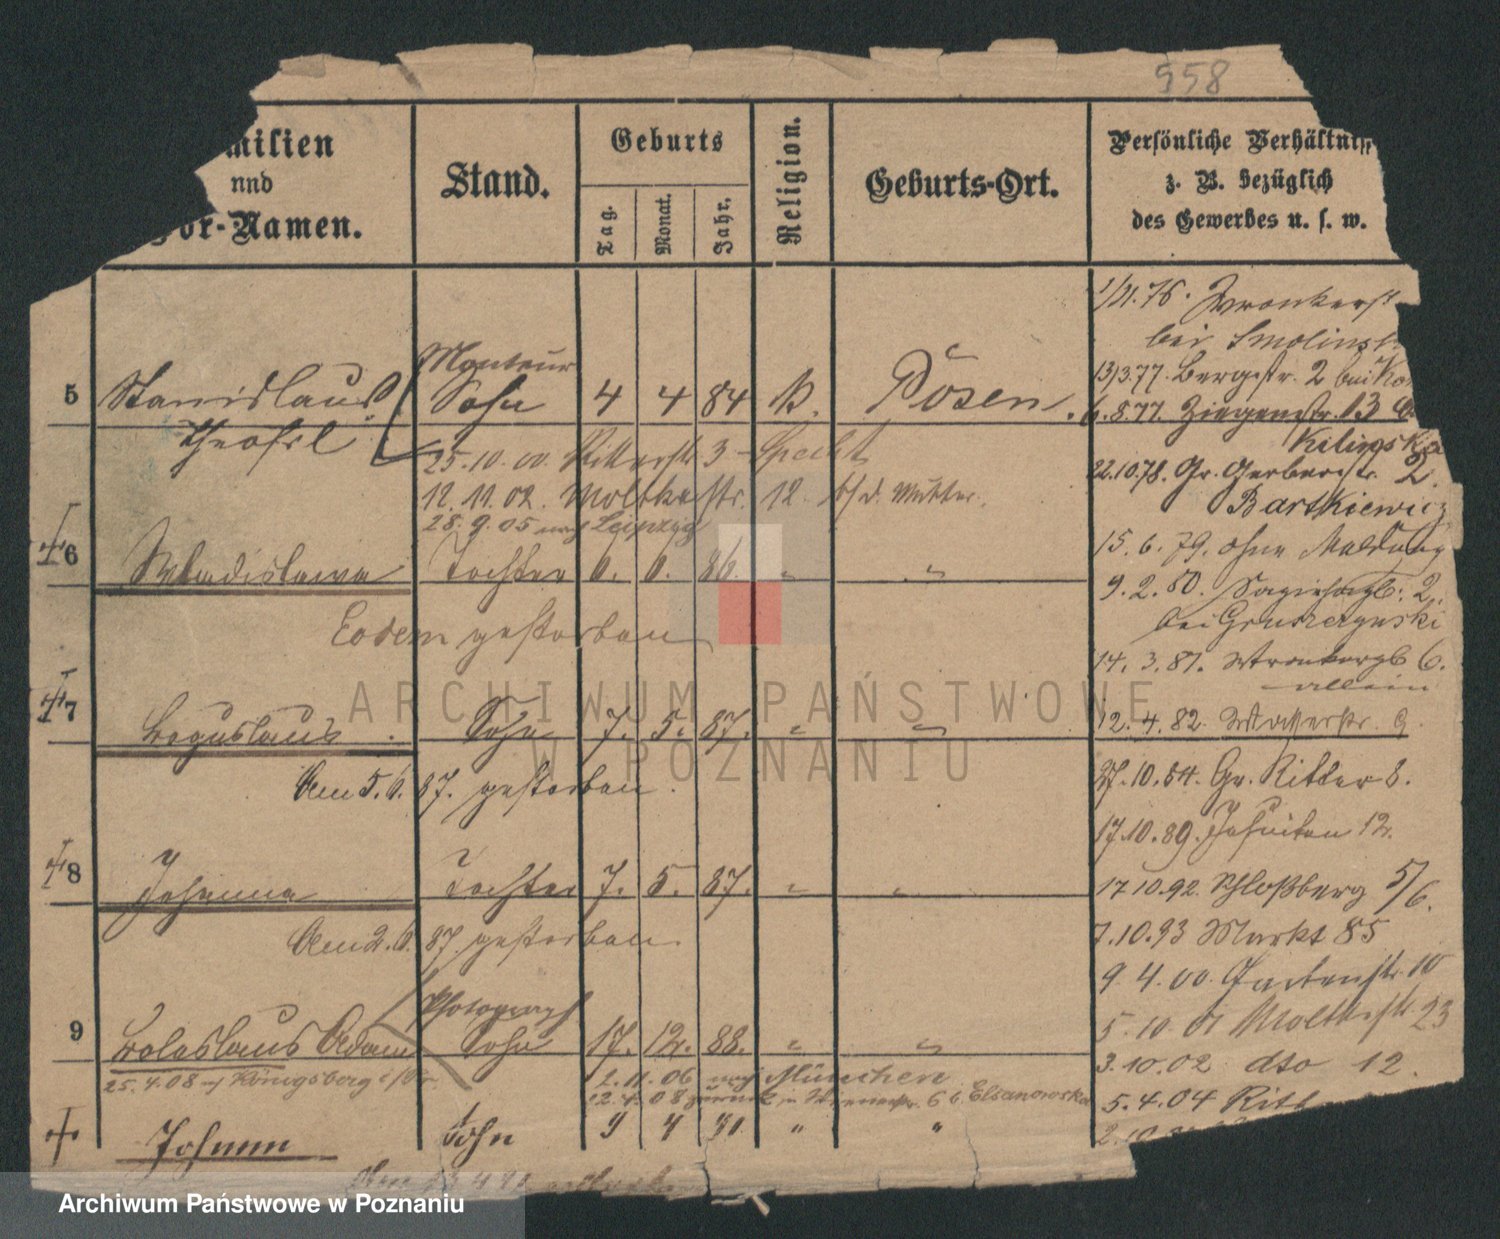 558
milien
und
Vor-Namen.
Stand.
Geburts
Tag.
Monat.
Jahr.
Religion.
Geburts-Ort.
Persönliche Verhältniss
z. B. bezüglich
des Gewerbes u. s. w.
1/11.76. Wronkerst
bei Smolinsk
Monteur
5 Stanislaus Sohn 4 4 84 K. Posen
13/3.77. Bergstr. 2 bei
6.8.77. Ziegenstr. 13
Theofil
Kilinska
25.10.00. Ritterstr 3 Specht
22.10.78. Gr. Gerberstr. 2.
12.11.02. Moltkestr. 12 b/d. Mutter.
Bartkiewicz
28.9.05 nach Leipzig
15.6.79. ohne Meldung
6 Wladislawa Tochter 6. 6. 86. " "
9.2.80. 2.
bei Gruszczynski
Eodem gestorben
14.3.81. 6.
allein
7 Boguslaus Sohn 7. 5. 87. " "
12.4.82. Wasserstr. 9.
Am 5.6.87. gestorben.
27.10.84. Gr. Ritter 8.
17.10.89. Jesuiten 12.
8 Johanna Tochter 7. 5. 87. " "
17.10.92. Schloßberg 5/6.
Am 2.6.87. gestorben.
7.10.93 Markt 85
9.4.00. Gartenstr. 10
Photograph
5.10.01 Moltkestr 23
9 Boleslaus Adam Sohn 17. 12. 88. " "
3.10.02 dto 12.
25.4.08 Königsberg i/Pr.
2.11.06 nach München
12.4.08 zurück 6 b. Elsanowska
5.4.04 Ritt
Johann Sohn 9 4 91 " "
ARCHIWUM PAŃSTWOWE
W POZNANIU
Archiwum Państwowe w Poznaniu